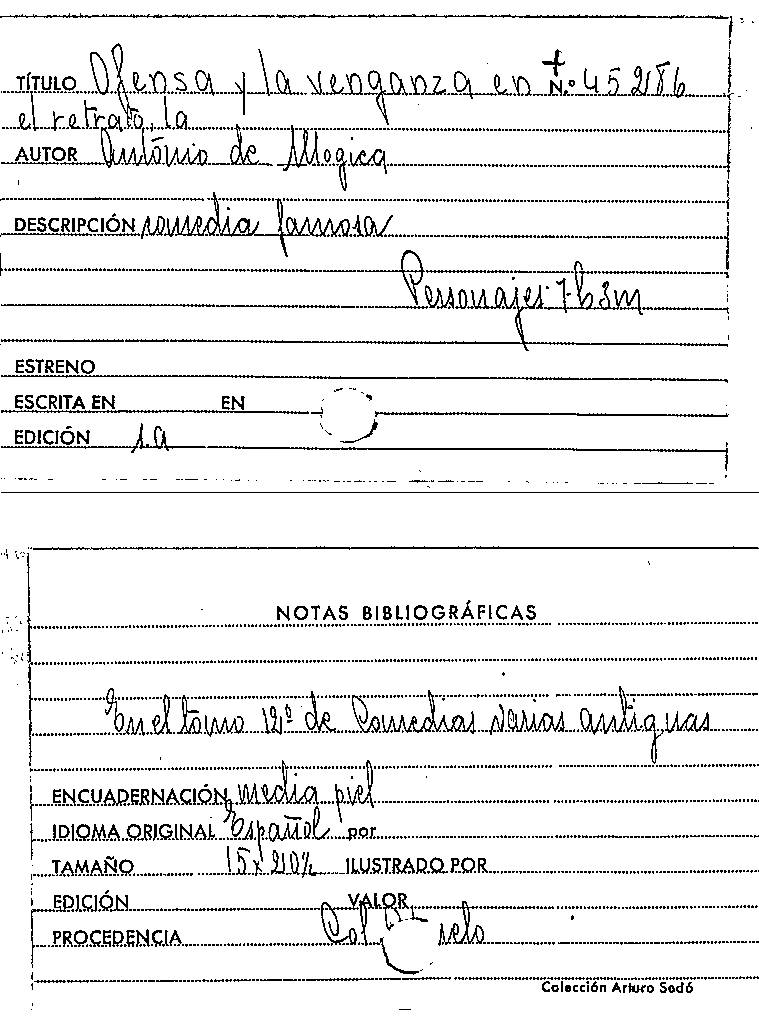 TÍTULO Ofensa y la venganza en N.º 45286
el retrato, la
AUTOR Antonio de Mogica
DESCRIPCIÓN comedia famosa
Personajes 7 h 3 m
ESTRENO
ESCRITA EN EN
EDICIÓN 1.a
NOTAS BIBLIOGRÁFICAS
En el tomo 12º de Comedias varias antiguas
ENCUADERNACIÓN media piel
IDIOMA ORIGINAL Español por
TAMAÑO 15 x 20½ ILUSTRADO POR
EDICIÓN VALOR
PROCEDENCIA Col
Colección Arturo Sedó